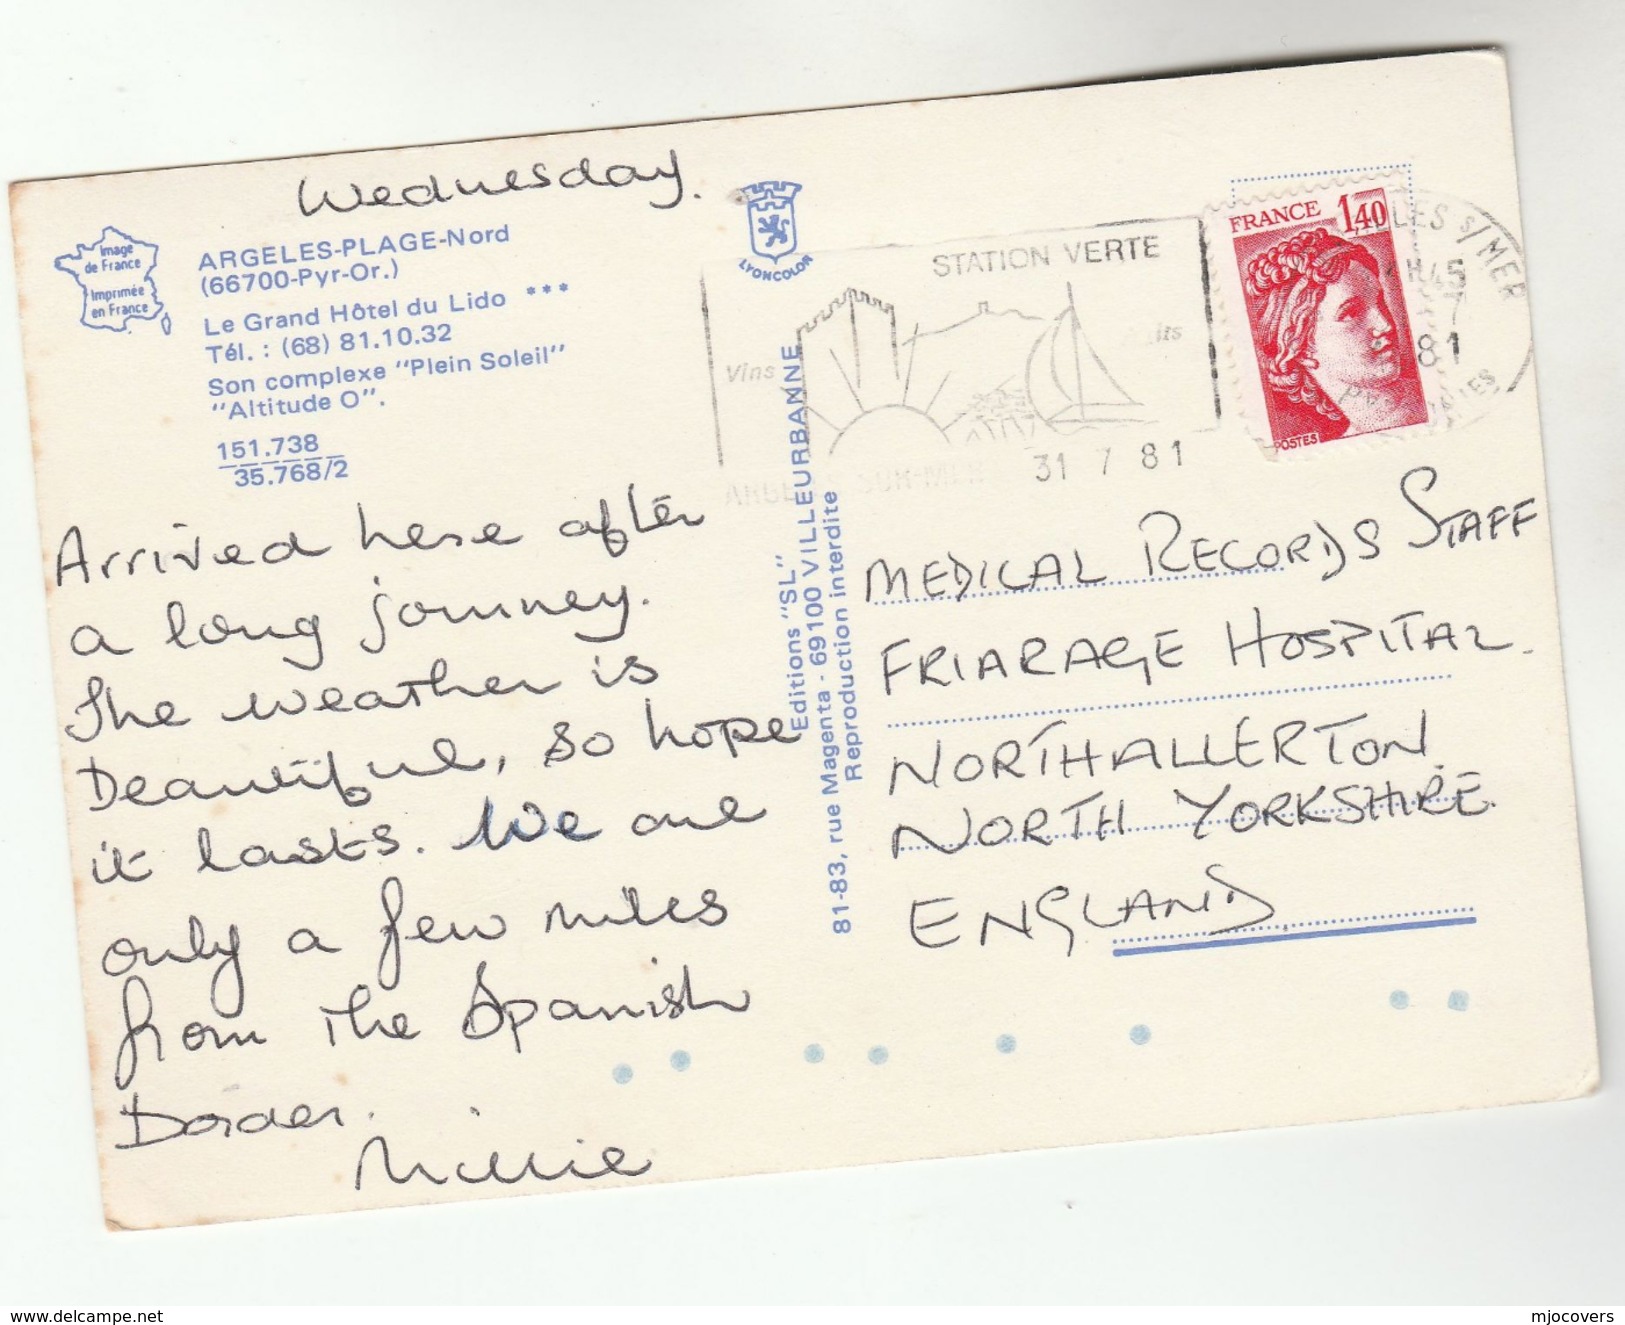 Wednesday.
Image
de France
Imprimée
en France
ARGELES-PLAGE-Nord
(66700-Pyr-Or.)
Le Grand Hôtel du Lido ***
Tél. : (68) 81.10.32
Son complexe "Plein Soleil"
"Altitude O".
151.738
35.768/2
Arrived here after
a long journey.
The weather is
beautiful, so hope
it lasts. We are
only a few miles
from the Spanish
Border.
Millie
LYONCOLOR
Editions "SL"
81-83, rue Magenta - 69100 VILLEURBANNE
Reproduction interdite
STATION VERTE
Vins
SUR-MER
31 7 81
FRANCE 1,40
POSTES
LES S/MER
H45
7
81
MEDICAL RECORDS STAFF
FRIARAGE HOSPITAL.
NORTHALLERTON.
NORTH YORKSHIRE.
ENGLAND
delcampe.net
mjocovers